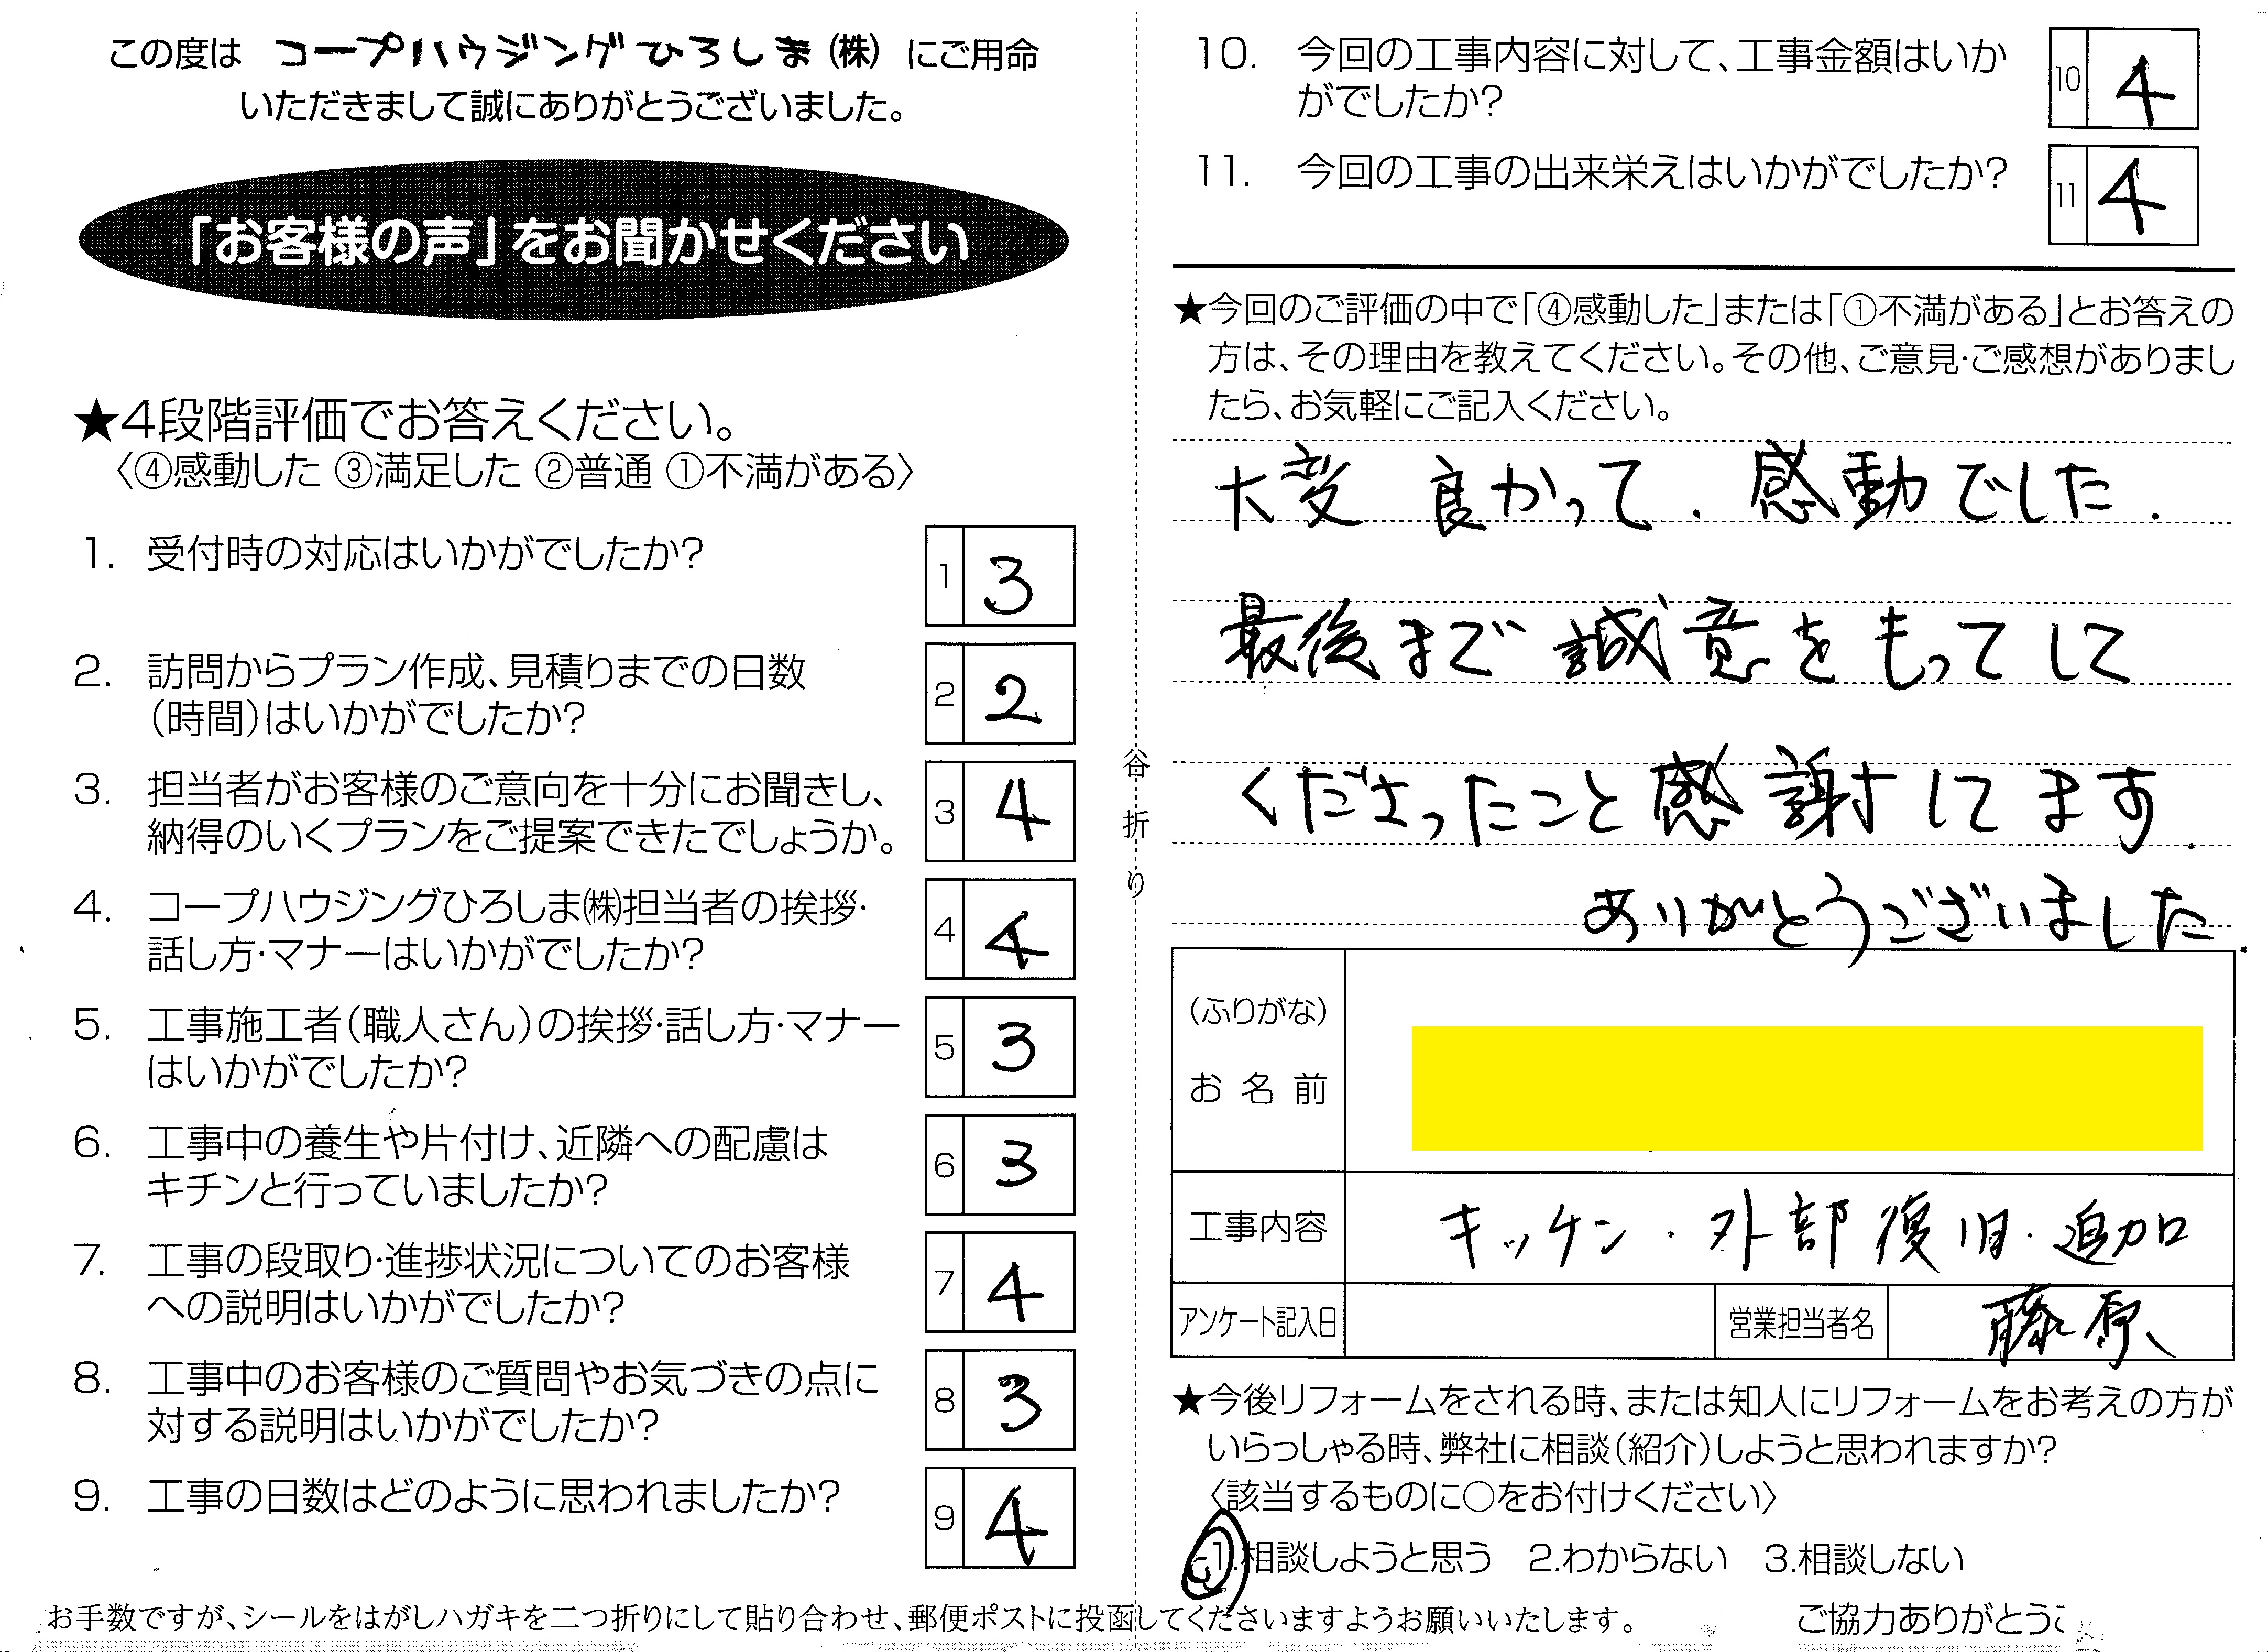 この度は コープハウジングひろしま(株) にご用命
いただきまして誠にありがとうございました。
「お客様の声」をお聞かせください
★4段階評価でお答えください。
〈④感動した ③満足した ②普通 ①不満がある〉
1. 受付時の対応はいかがでしたか?
1 3
2. 訪問からプラン作成、見積りまでの日数
(時間)はいかがでしたか?
2 2
3. 担当者がお客様のご意向を十分にお聞きし、
納得のいくプランをご提案できたでしょうか。
3 4
4. コープハウジングひろしま㈱担当者の挨拶・
話し方・マナーはいかがでしたか?
4 4
5. 工事施工者(職人さん)の挨拶・話し方・マナー
はいかがでしたか?
5 3
6. 工事中の養生や片付け、近隣への配慮は
キチンと行っていましたか?
6 3
7. 工事の段取り・進捗状況についてのお客様
への説明はいかがでしたか?
7 4
8. 工事中のお客様のご質問やお気づきの点に
対する説明はいかがでしたか?
8 3
9. 工事の日数はどのように思われましたか?
9 4
谷折り
10. 今回の工事内容に対して、工事金額はいか
がでしたか?
10 4
11. 今回の工事の出来栄えはいかがでしたか?
11 4
★今回のご評価の中で「④感動した」または「①不満がある」とお答えの
方は、その理由を教えてください。その他、ご意見・ご感想がありまし
たら、お気軽にご記入ください。
大変 良かって. 感動でした.
最後まで 誠意をもってして
くださったこと感謝してます.
ありがとうございました
(ふりがな)
お名前
工事内容 キッチン・外部復旧・追加
アンケート記入日 営業担当者名 藤原
★今後リフォームをされる時、または知人にリフォームをお考えの方が
いらっしゃる時、弊社に相談(紹介)しようと思われますか?
〈該当するものに○をお付けください〉
1.相談しようと思う 2.わからない 3.相談しない
お手数ですが、シールをはがしハガキを二つ折りにして貼り合わせ、郵便ポストに投函してくださいますようお願いいたします。
ご協力ありがとうご